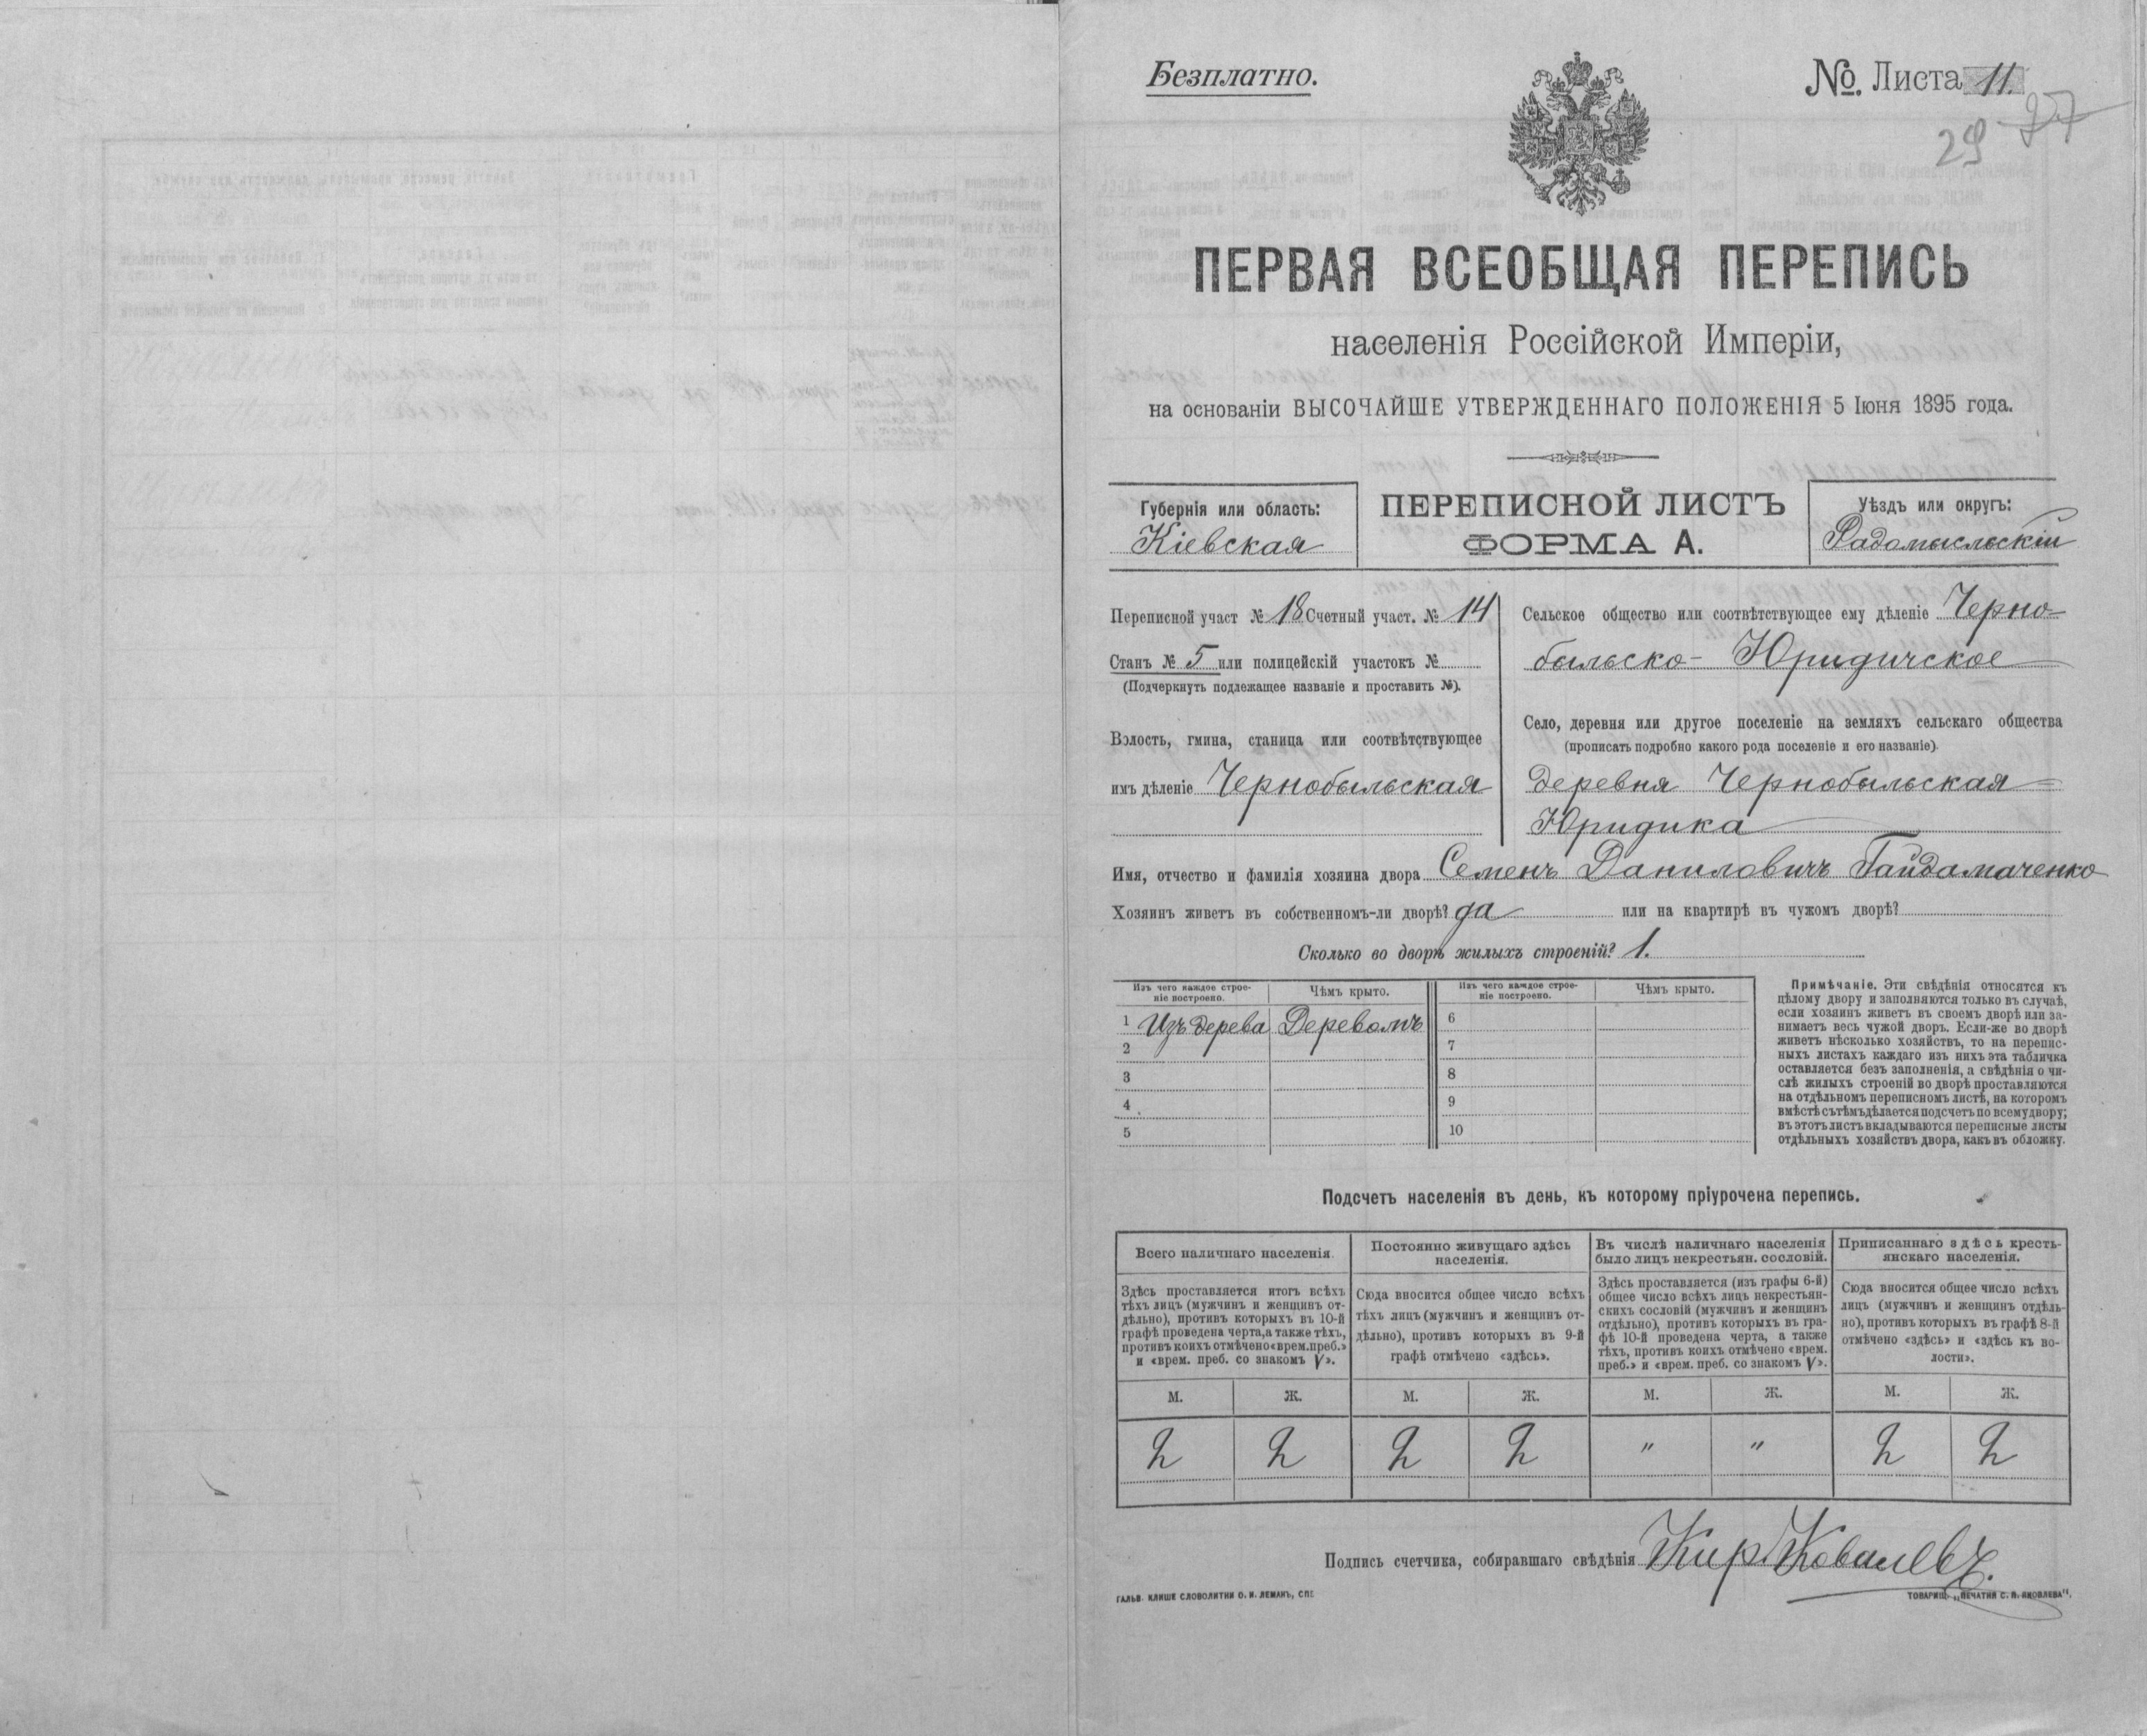 Безплатно.
№. Листа 11.
29 27
ПЕРВАЯ ВСЕОБЩАЯ ПЕРЕПИСЬ
населенія Россійской Имперіи,
на основаніи ВЫСОЧАЙШЕ УТВЕРЖДЕННАГО ПОЛОЖЕНІЯ 5 Іюня 1895 года.
Губернія или область:
Кіевская
ПЕРЕПИСНОЙ ЛИСТЪ
ФОРМА А.
Уѣздъ или округъ:
Радомысльскій
Переписной участ № 18 Счетный участ. № 14
Станъ № 5 или полицейскій участокъ №
(Подчеркнуть подлежащее названіе и проставить №).
Волость, гмина, станица или соотвѣтствующее
имъ дѣленіе Чернобыльская
Сельское общество или соотвѣтствующее ему дѣленіе Черно-
быльско-Юридичское
Село, деревня или другое поселеніе на земляхъ сельскаго общества
(прописать подробно какого рода поселеніе и его названіе).
деревня Чернобыльская=
Юридика
Имя, отчество и фамилія хозяина двора Семенъ Даниловичъ Гайдамаченко
Хозяинъ живетъ въ собственномъ-ли дворѣ? да или на квартирѣ въ чужомъ дворѣ?
Сколько во дворѣ жилыхъ строеній? 1.
Изъ чего каждое строе-
ніе построено.
Чѣмъ крыто.
Изъ чего каждое строе-
ніе построено.
Чѣмъ крыто.
1 Изъ дерева Деревомъ 6
2 7
3 8
4 9
5 10
Примѣчаніе. Эти свѣдѣнія относятся къ
цѣлому двору и заполняются только въ случаѣ,
если хозяинъ живетъ въ своемъ дворѣ или за-
нимаетъ весь чужой дворъ. Если-же во дворѣ
живетъ нѣсколько хозяйствъ, то на перепис-
ныхъ листахъ каждаго изъ нихъ эта табличка
оставляется безъ заполненія, а свѣдѣнія о чи-
слѣ жилыхъ строеній во дворѣ проставляются
на отдѣльномъ переписномъ листѣ, на которомъ
вмѣстѣ съ тѣмъ дѣлается подсчетъ по всему двору;
въ этотъ листъ вкладываются переписные листы
отдѣльныхъ хозяйствъ двора, какъ въ обложку.
Подсчетъ населенія въ день, къ которому пріурочена перепись.
Всего наличнаго населенія.
Здѣсь проставляется итогъ всѣхъ
тѣхъ лицъ (мужчинъ и женщинъ от-
дѣльно), противъ которыхъ въ 10-й
графѣ проведена черта, а также тѣхъ,
противъ коихъ отмѣчено «врем. преб.»
и «врем. преб. со знакомъ V».
Постоянно живущаго здѣсь
населенія.
Сюда вносится общее число всѣхъ
тѣхъ лицъ (мужчинъ и женщинъ от-
дѣльно), противъ которыхъ въ 9-й
графѣ отмѣчено «здѣсь».
Въ числѣ наличнаго населенія
было лицъ некрестьян. сословій.
Здѣсь проставляется (изъ графы 6-й)
общее число всѣхъ лицъ некрестьян-
скихъ сословій (мужчинъ и женщинъ
отдѣльно), противъ которыхъ въ гра-
фѣ 10-й проведена черта, а также
тѣхъ, противъ коихъ отмѣчено «врем.
преб.» и «врем. преб. со знакомъ V».
Приписаннаго здѣсь кресть-
янскаго населенія.
Сюда вносится общее число всѣхъ
лицъ (мужчинъ и женщинъ отдѣль-
но), противъ которыхъ въ графѣ 8-й
отмѣчено «здѣсь» и «здѣсь къ во-
лости».
М. Ж. М. Ж. М. Ж. М. Ж.
2 2 2 2 " " 2 2
Подпись счетчика, собиравшаго свѣдѣнія Кир. Ковалевъ.
ГАЛЬВ. КЛИШЕ СЛОВОЛИТНИ О. И. ЛЕМАНЪ, СПБ
ТОВАРИЩ. „ПЕЧАТНЯ С. П. ЯКОВЛЕВА".